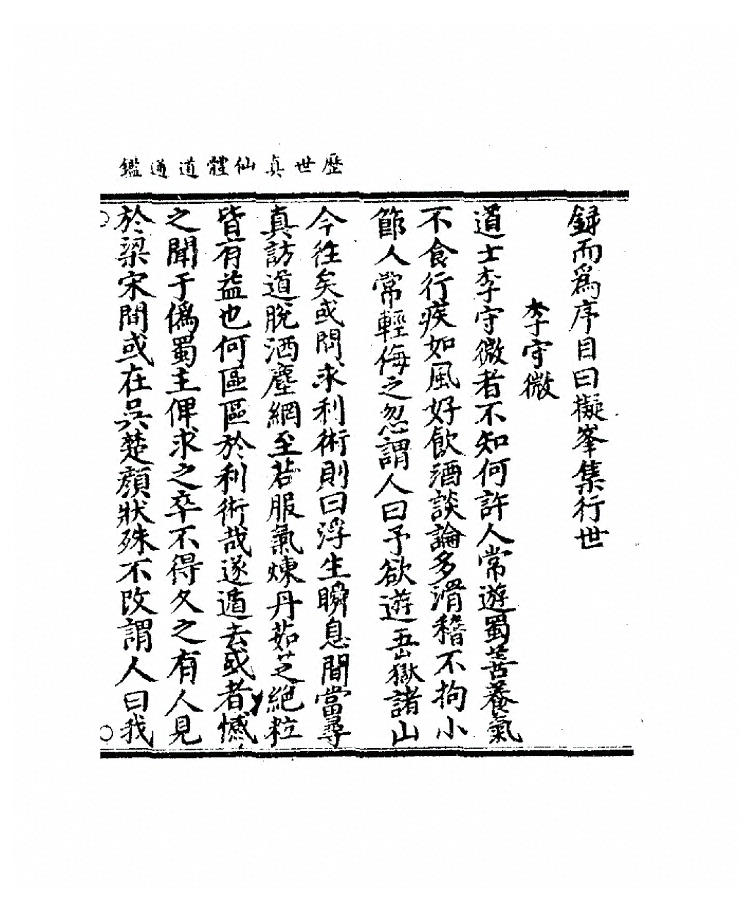 歷世真仙體道通鑑
録而爲序目曰擬峯集行世
李守微
道士李守微者不知何許人常遊蜀善養氣
不食行疾如風好飲酒談論多滑稽不拘小
節人常輕侮之忽謂人曰予欲遊五嶽諸山
今往矣或問求利術則曰浮生瞬息間當尋
真訪道脫洒塵網至若服氣煉丹茹芝絕粒
皆有益也何區區於利術哉遂遁去或者憾
之聞于僞蜀主俾求之卒不得久之有人見
於梁宋間或在吳楚顏狀殊不改謂人曰我